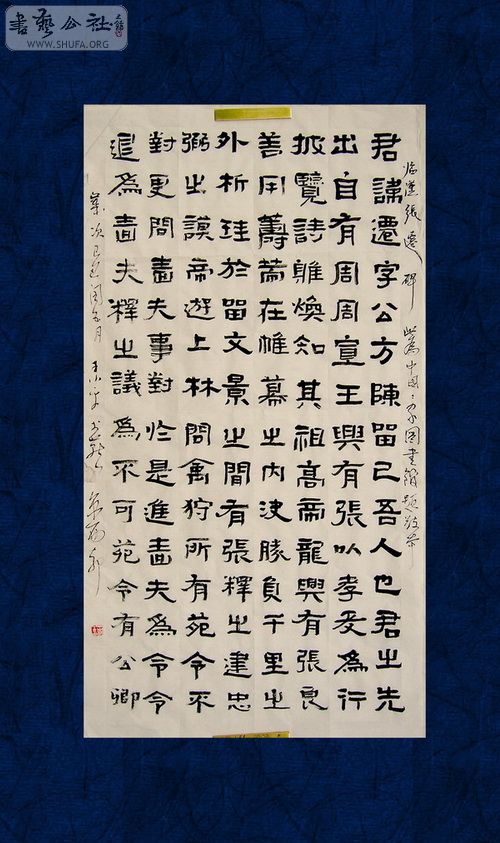 書藝公社
WWW.SHUFA.ORG
張遷碑
君諱遷字公方陳留己吾人也君之先
出自有周周宣王興有張以孝友為行
披覽詩雅煥知其祖高帝龍興有張良
善用籌策在帷幕之內決勝負千里之
外析珪於留文景之間有張釋之建忠
弼之謨帝遊上林問禽狩所有苑令不
對更問嗇夫事對於是進嗇夫為令令
退為嗇夫釋之議為不可苑令有公卿
歲次己丑閏五月